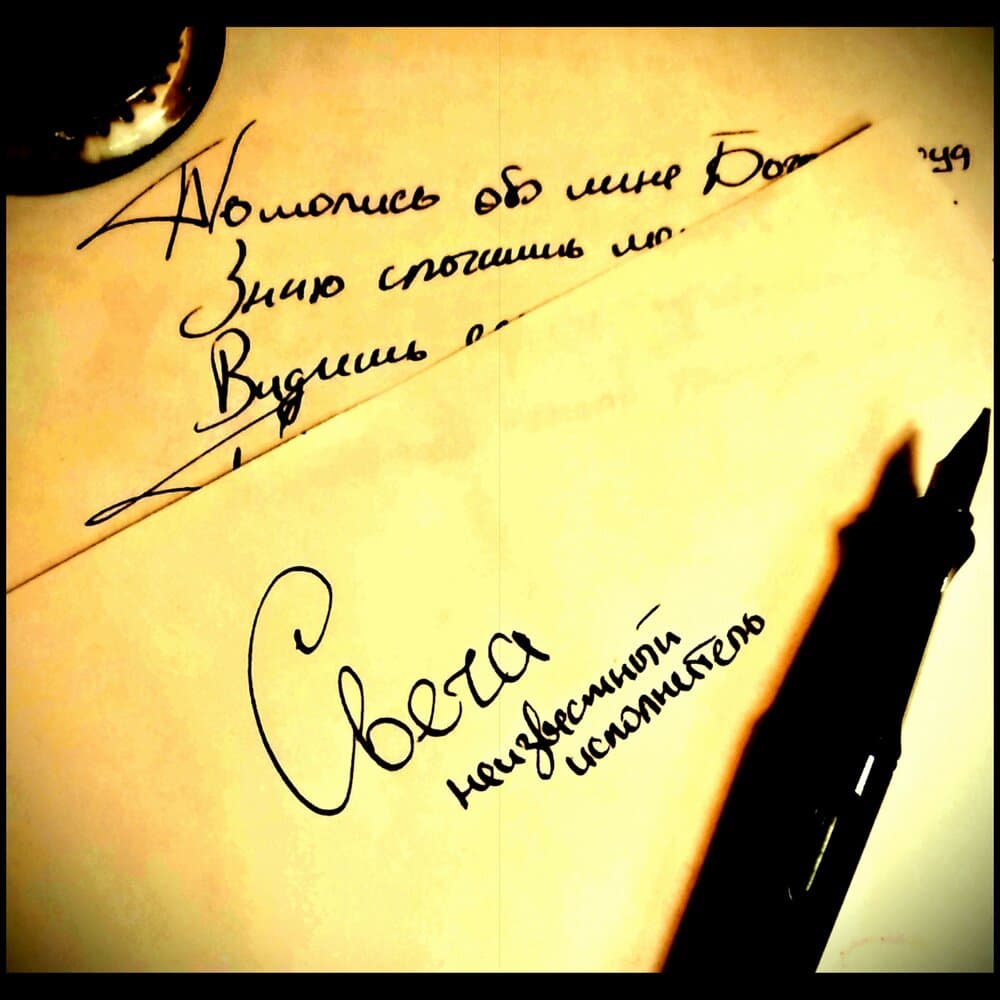 Помолись обо мне
Знаю слышишь
Видишь
Свеча
неизвестный
исполнитель